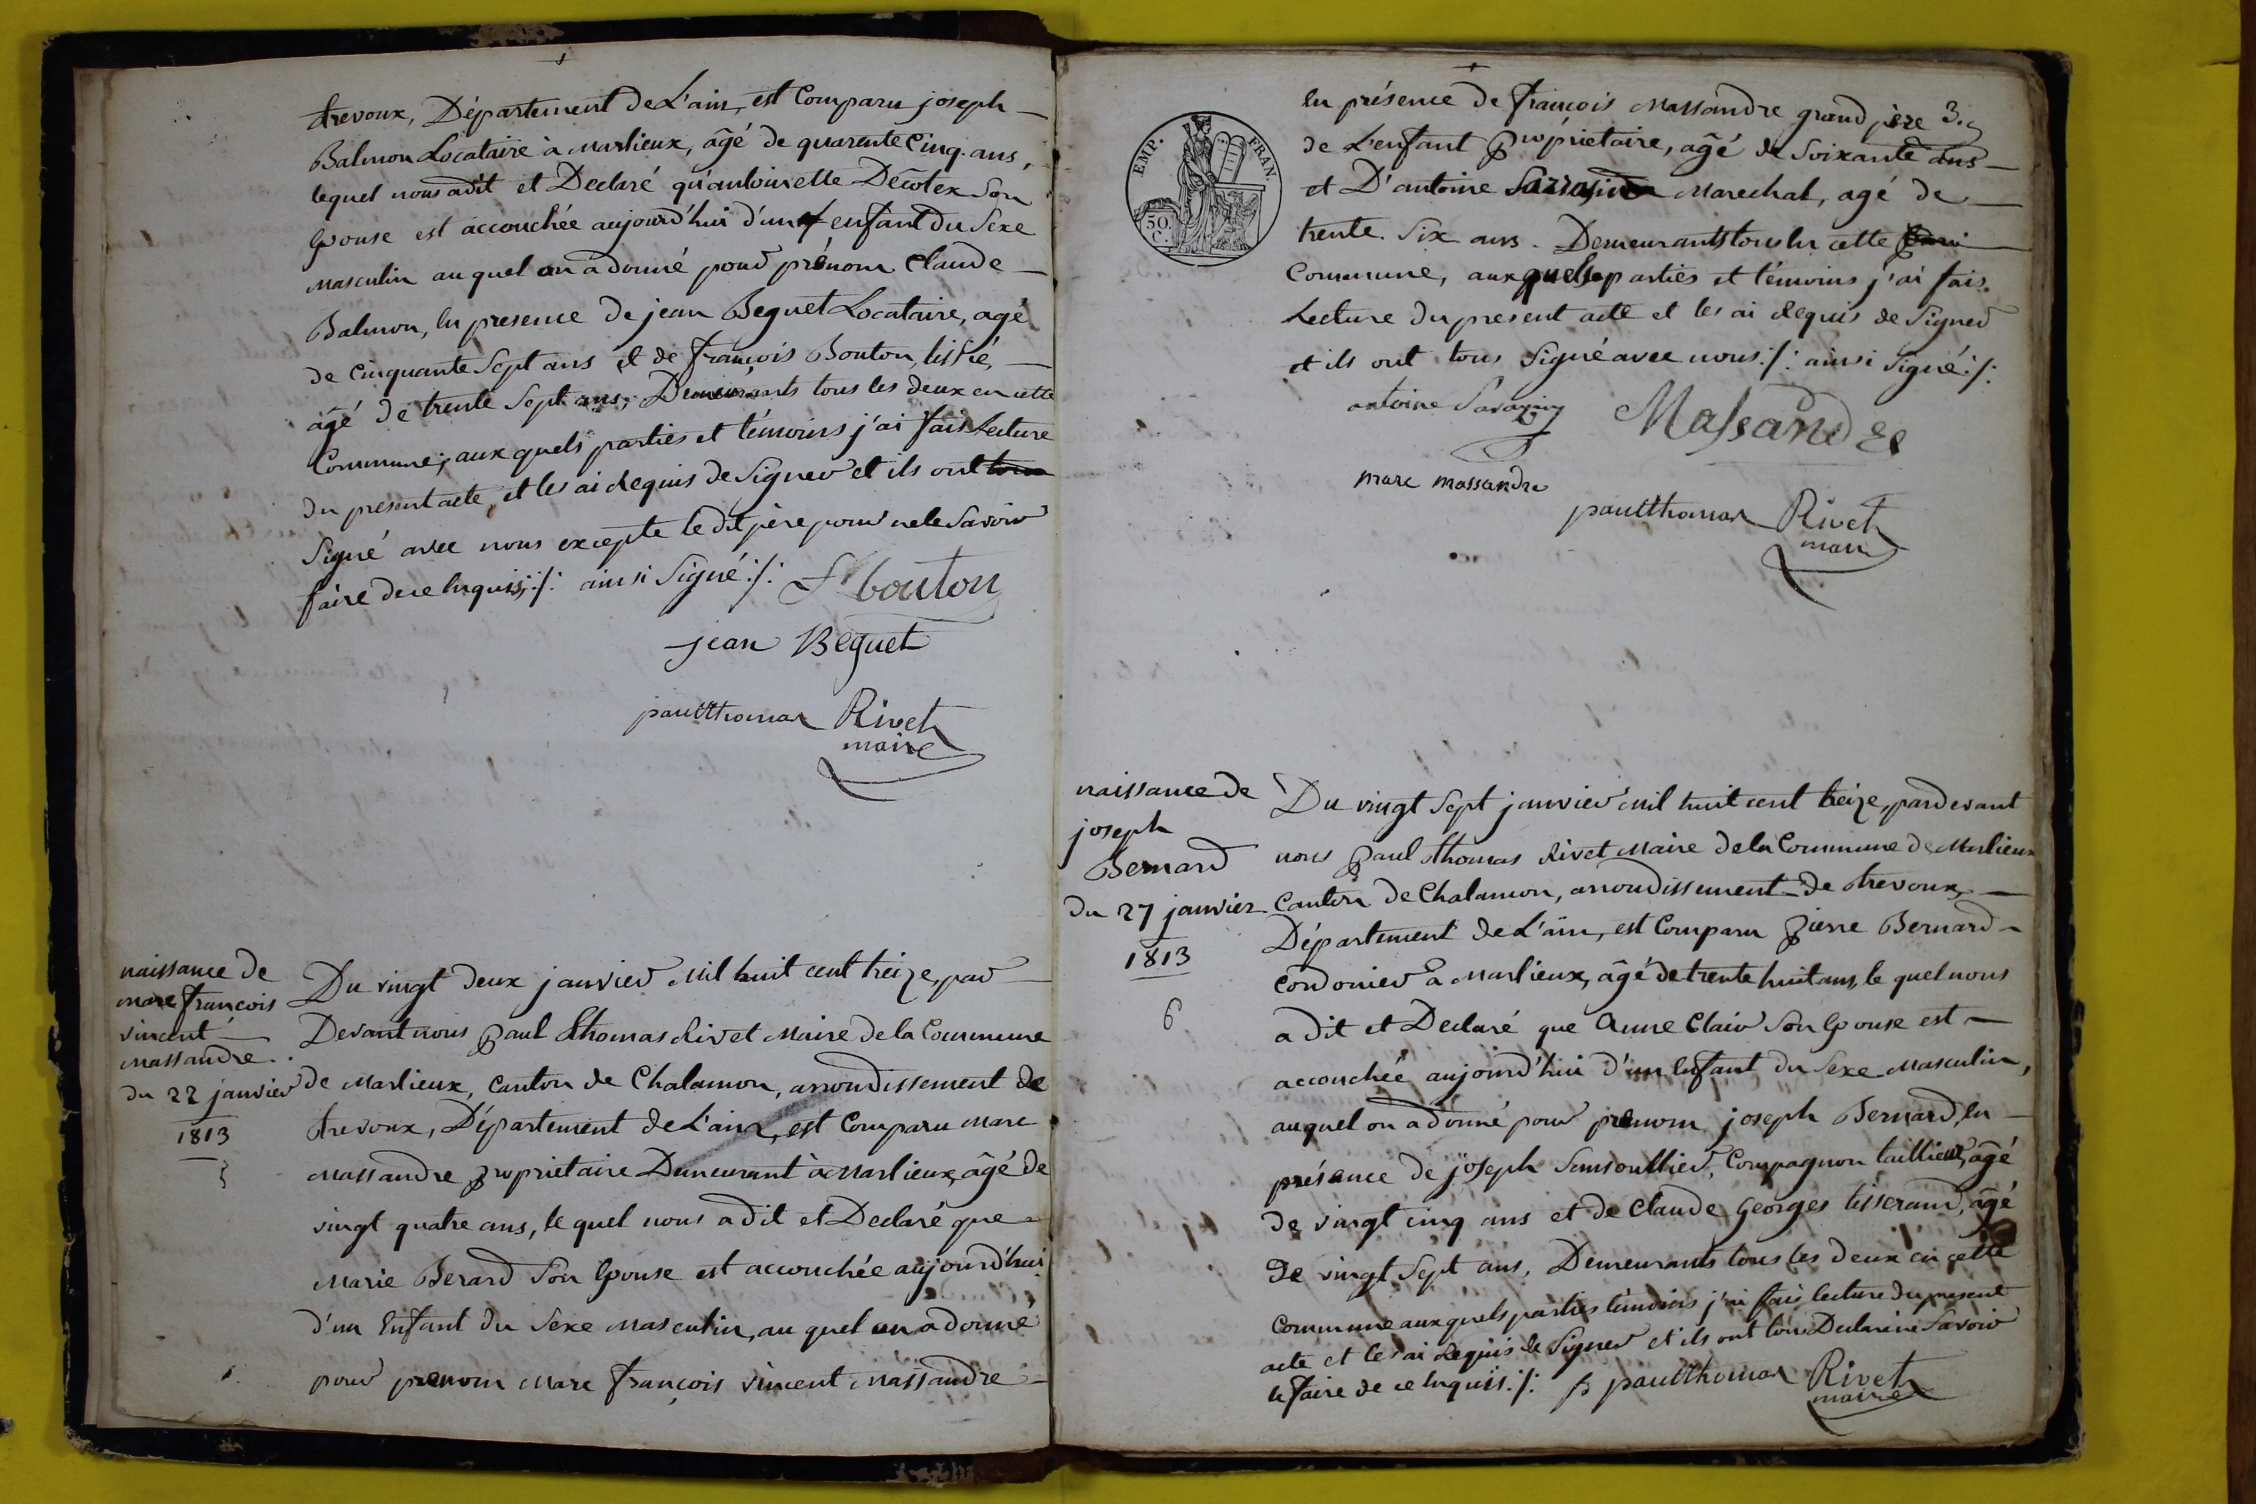 trevoux, Département de L'ain, est Comparu joseph
Balmon Locataire à Marlieux, âgé de quarente Cinq ans,
lequel nous adit et Declaré qu'antoinette Decotex son
Epouse est accouchée aujourd'hui d'un enfant du Sexe
Masculin au quel on a donné pour prénom Claude
Balmon, En presence de jean Beguet Locataire, agé
de Cinquante Sept ans et de françois Bouton, tissié,
âgé de trente Sept ans, Demeurants tous les deux en cette
Commune; aux quels parties et témoins j'ai fais Lecture
du present acte, et les ai Requis de Signer et ils ont tous
Signé avec nous excepte le dit père pour ne le Savoir
faire de ce Enquis; :/: ainsi Signé :/: f bouton
jean Beguet
paul thomas Rivet
maire
naissance de
Marc françois
vincent
Massandre.
du 22 janvier
1813
Du vingt deux janvier Mil huit cent treize, par
Devant nous Paul thomas Rivet Maire de la Commune
de Marlieux, Canton de Chalamon, arrondissement de
trevoux, Département de L'ain, est Comparu Marc
Massandre propriétaire Demeurant à Marlieux, âgé de
vingt quatre ans, le quel nous a dit et Declaré que
Marie Berard Son Epouse est accouchée aujourd'hui
d'un Enfant du Sexe Masculin, au quel on a donné
pour prenom Marc françois vincent Massandre
3.
EMP. FRAN.
50. C.
En présence de françois Massandre grand père
de L'enfant propriétaire, agé de Soixante ans
et D'antoine Sarrasin Marechal, agé de
trente Six ans. Demeurants tous En cette
Commune, aux quels parties et témoins j'ai fais
Lecture du present acte et les ai Requis de Signer
et ils ont tous Signé avec nous :/: ainsi Signé :/:
antoine Sarazin Massandre
marc massandre
paul thomas Rivet
maire
naissance de
joseph
Bernard
du 27 janvier
1813
6
Du vingt Sept janvier Mil huit cent treize, pardevant
nous Paul thomas Rivet Maire de la Commune de Marlieux
Canton de Chalamon, arrondissement de trevoux,
Département de L'ain, est Comparu Pierre Bernard
Cordonier à Marlieux, âgé de trente huit ans, le quel nous
a dit et Declaré que Anne Clair Son Epouse est
accouchée aujourd'hui d'un Enfant du Sexe Masculin,
auquel on a donné pour prenom joseph Bernard, En
présence de joseph Compagnon tallieur, âgé
de vingt cinq ans et de Claude Georges tisserand, âgé
De vingt Sept ans, Demeurants tous les deux en cette
Commune aux quels parties témoins j'ai fais lecture du present
acte et les ai Requis de Signer et ils ont tous Declaré ne Savoir
le faire de ce Enquis :/: paul thomas Rivet
maire